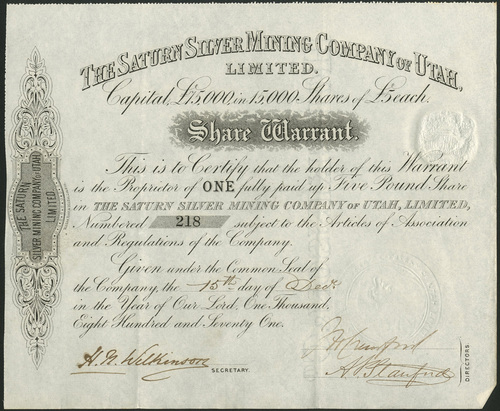 THE SATURN SILVER MINING COMPANY OF UTAH,
LIMITED.
Capital, £75,000 in 15,000 Shares of £5 each.
Share Warrant.
This is to Certify that the holder of this Warrant
is the Proprietor of ONE fully paid up Five Pound Share
in THE SATURN SILVER MINING COMPANY OF UTAH, LIMITED,
Numbered 218 subject to the Articles of Association
and Regulations of the Company.
Given under the Common Seal of
the Company, the 15th day of Decr
in the Year of Our Lord, One Thousand,
Eight Hundred and Seventy One.
H. G. Wilkinson
SECRETARY.
Crawford
A. Stanford
DIRECTORS
THE SATURN
SILVER MINING COMPANY OF UTAH
LIMITED.